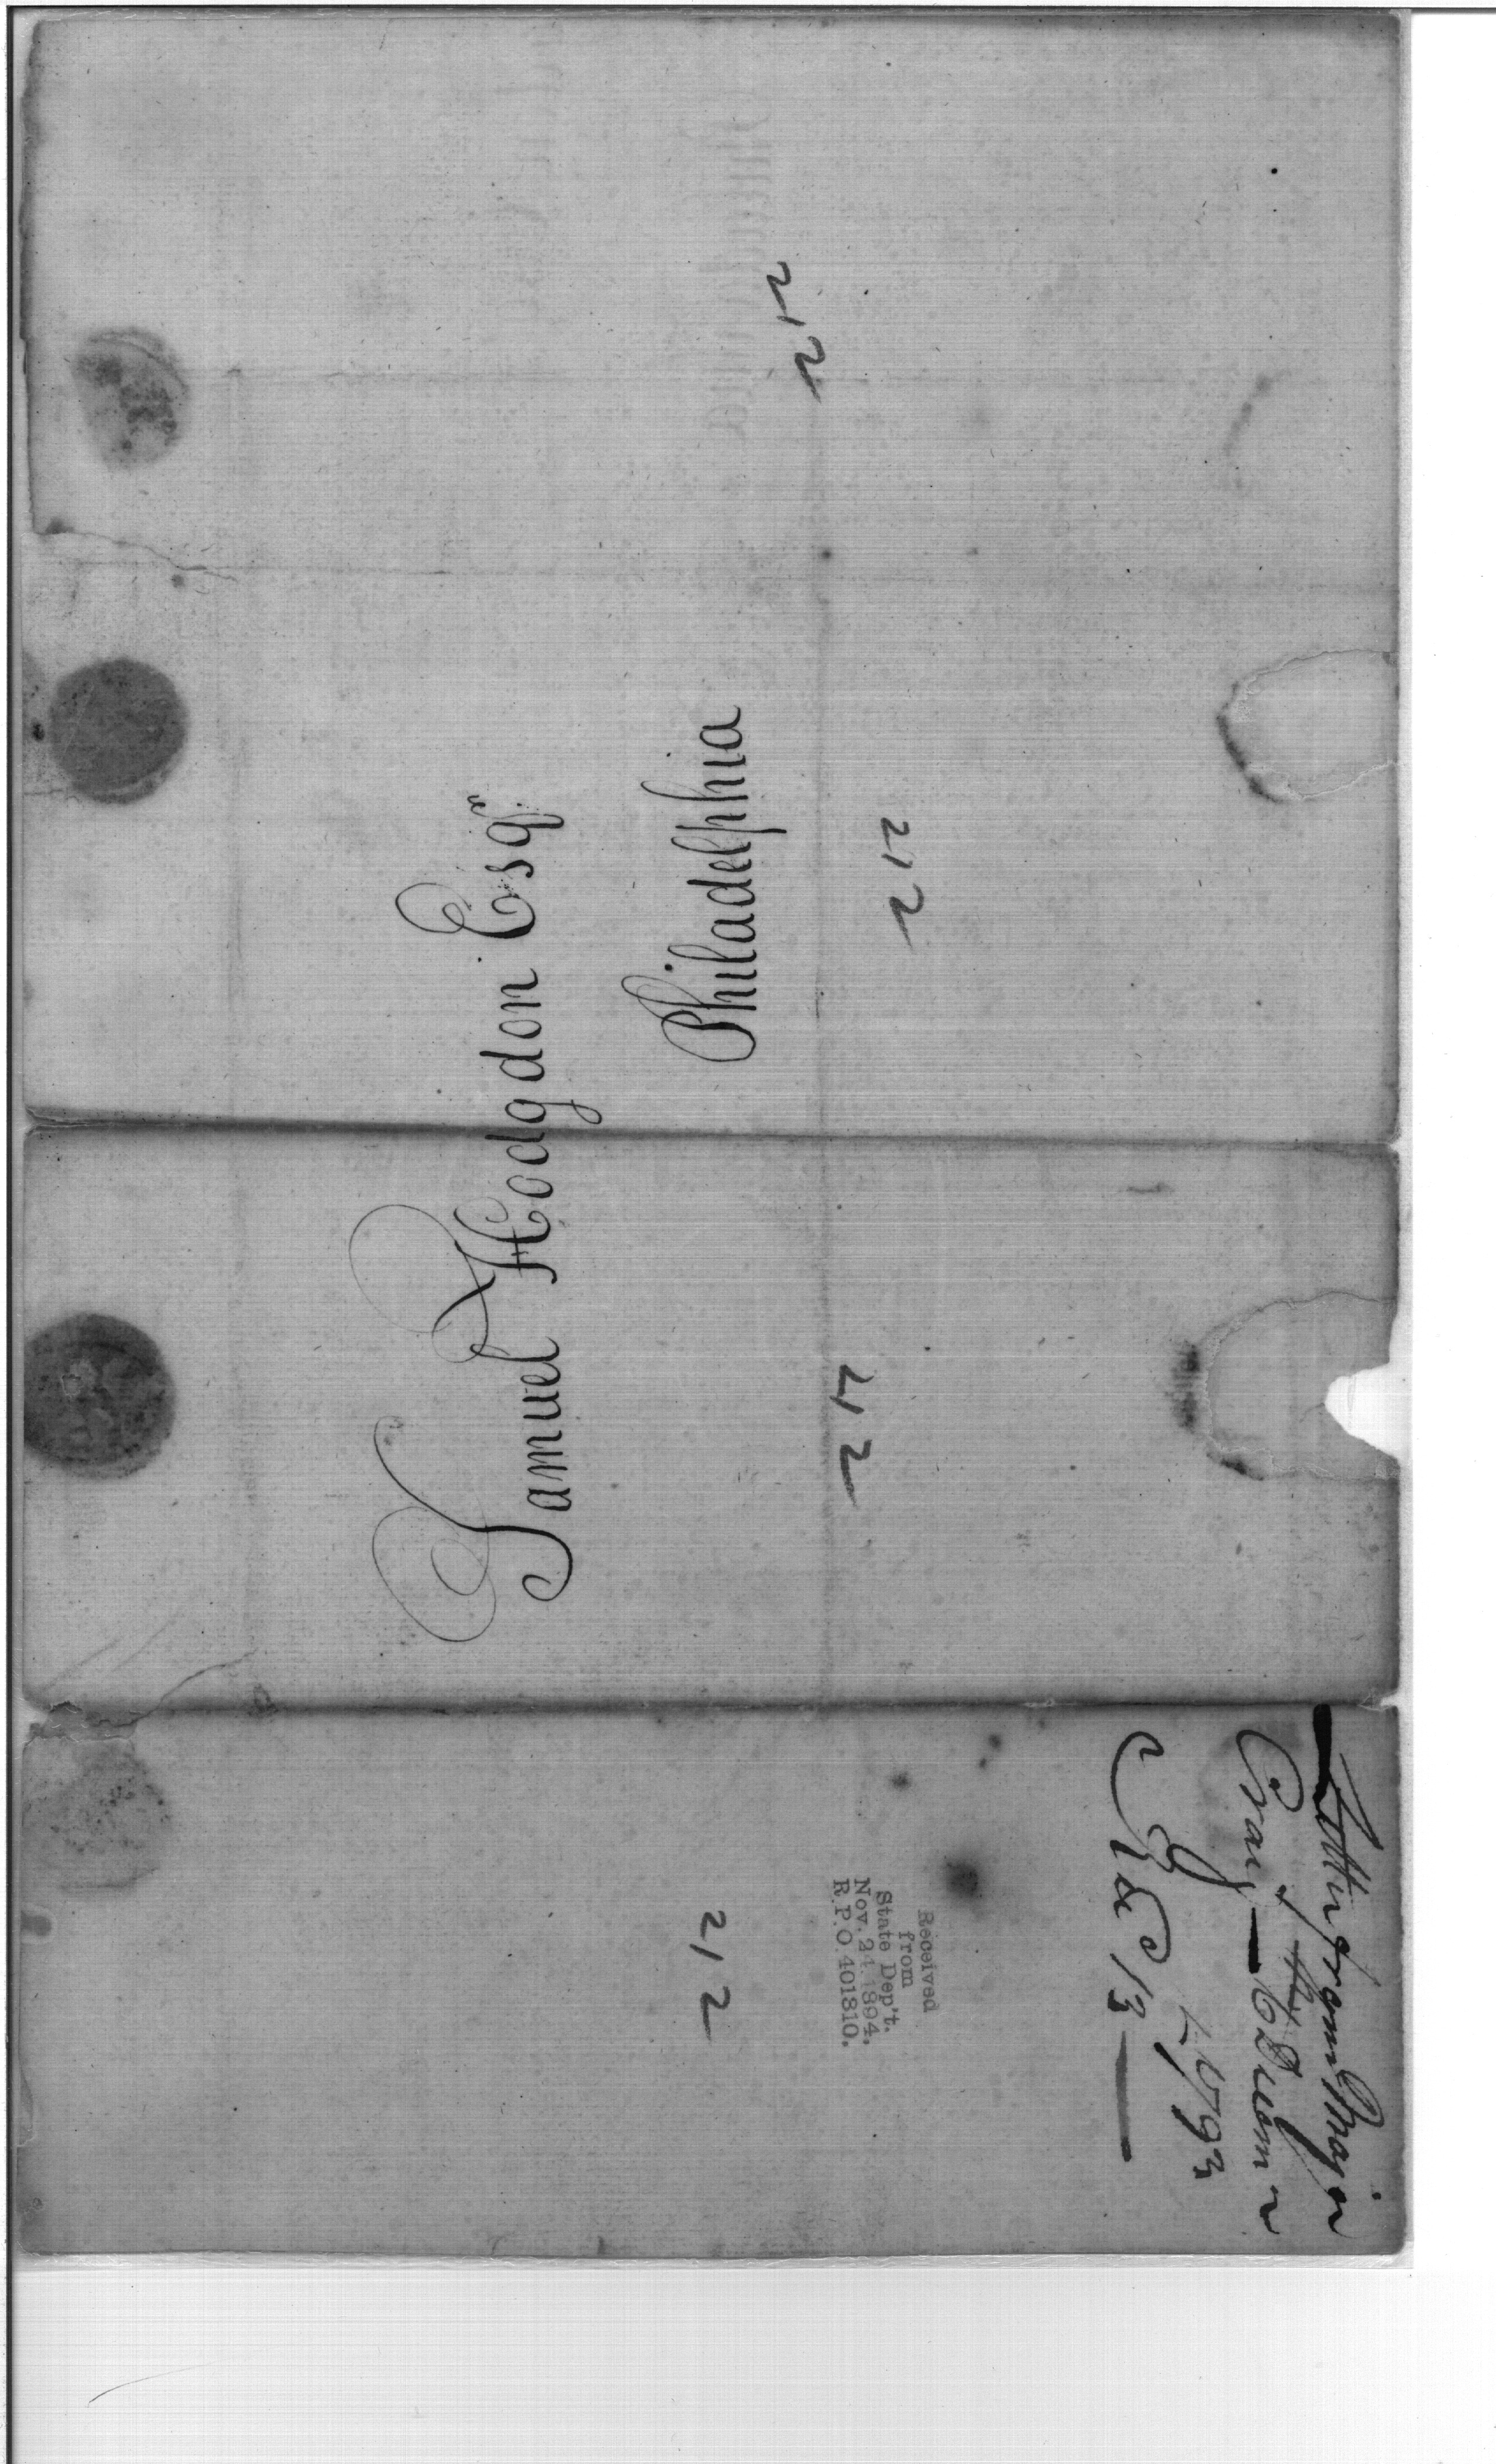 Samuel Hodgdon Esqre.
Philadelphia
212
212
212
212
Received
from
State Dep't.
Nov. 24. 1894.
R.P.O. 401810.
Letter from Major
Craig —
1793